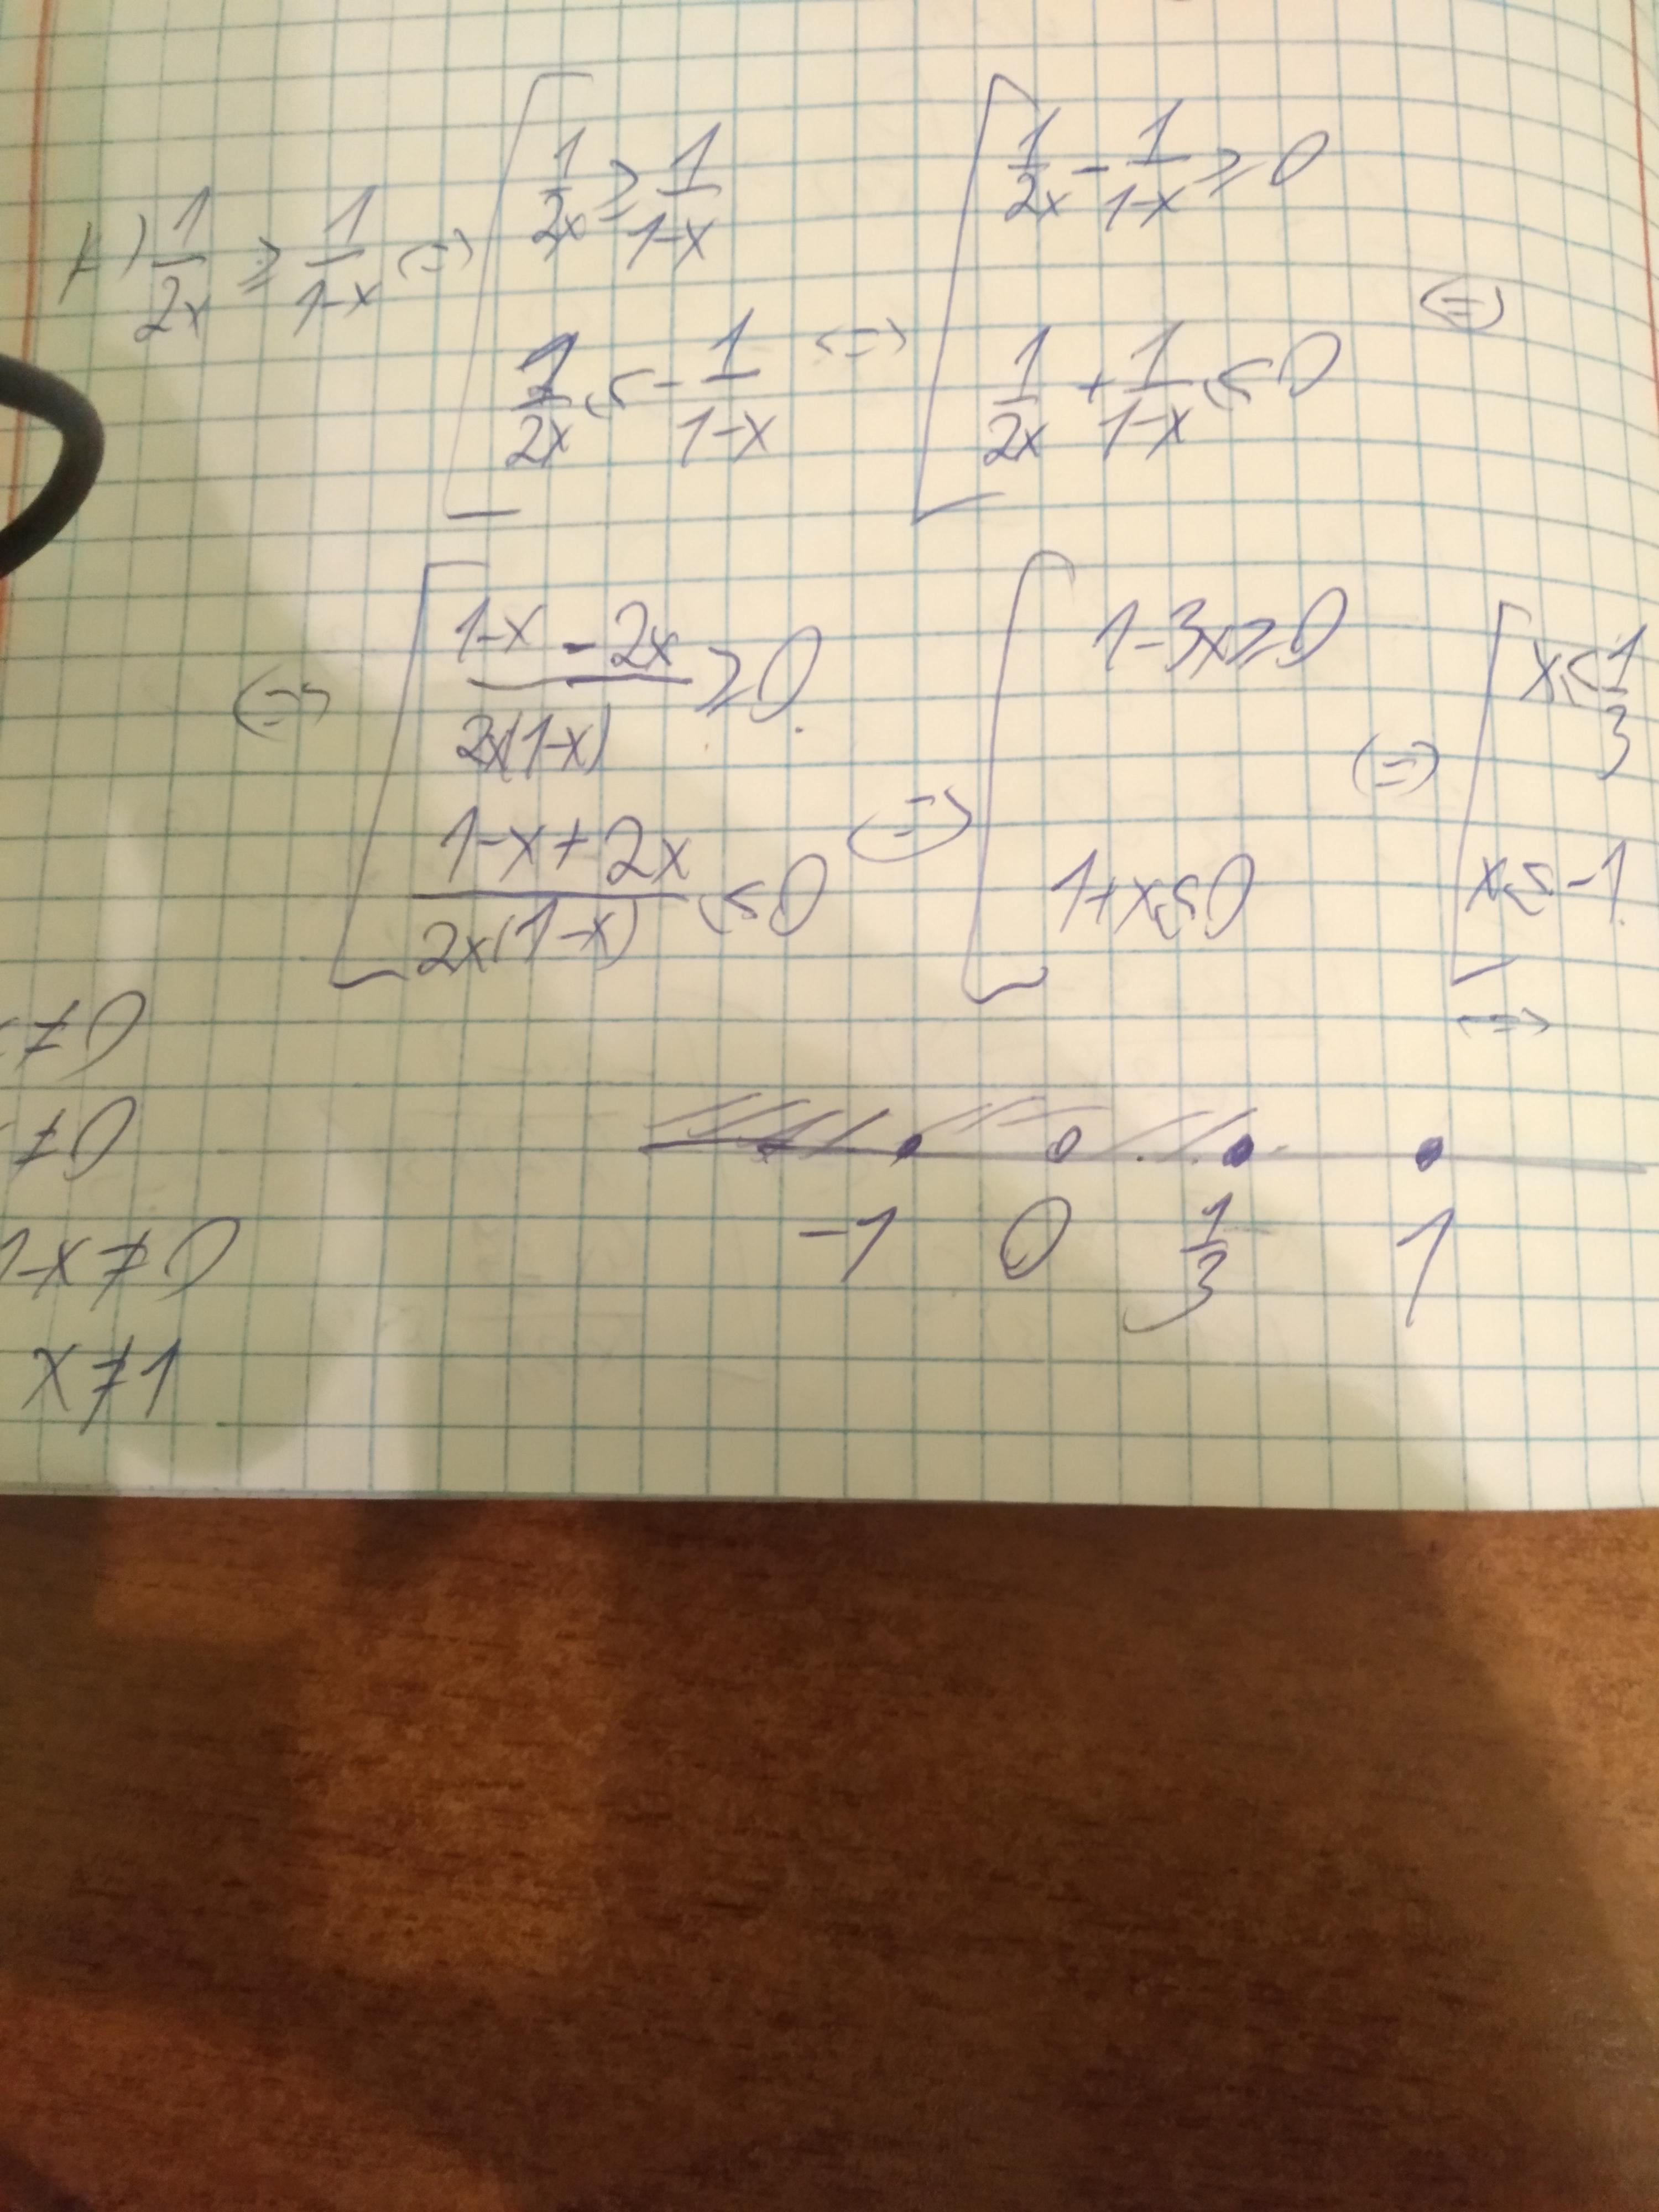 1/2x ≥ 1/(1-x) <=> [ 1/2x ≥ 1/(1-x)
1/2x ≤ - 1/(1-x) <=> [ 1/2x - 1/(1-x) ≥ 0
1/2x + 1/(1-x) ≤ 0 <=>
<=> [ (1-x - 2x)/(2x(1-x)) ≥ 0
(1-x + 2x)/(2x(1-x)) ≤ 0 <=> [ 1-3x ≥ 0
1+x ≤ 0 <=> [ x ≤ 1/3
x ≤ -1
<=>
≠0
≠0
1-x≠0
x≠1
-1 0 1/3 1